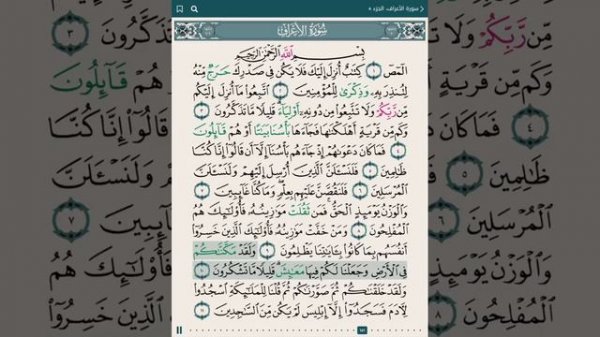 سورة الأعراف، الجزء ٨
سُورَةُ الأَعْرَافِ
بِسْمِ ٱللَّهِ ٱلرَّحْمَٰنِ ٱلرَّحِيمِ
الٓمٓصٓ ١ كِتَٰبٌ أُنزِلَ إِلَيْكَ فَلَا يَكُن فِى صَدْرِكَ حَرَجٌ مِّنْهُ
لِتُنذِرَ بِهِۦ وَذِكْرَىٰ لِلْمُؤْمِنِينَ ٢ ٱتَّبِعُوا۟ مَآ أُنزِلَ إِلَيْكُم
مِّن رَّبِّكُمْ وَلَا تَتَّبِعُوا۟ مِن دُونِهِۦٓ أَوْلِيَآءَ ۗ قَلِيلًا مَّا تَذَكَّرُونَ ٣
وَكَم مِّن قَرْيَةٍ أَهْلَكْنَٰهَا فَجَآءَهَا بَأْسُنَا بَيَٰتًا أَوْ هُمْ قَآئِلُونَ
٤ فَمَا كَانَ دَعْوَىٰهُمْ إِذْ جَآءَهُم بَأْسُنَآ إِلَّآ أَن قَالُوٓا۟ إِنَّا كُنَّا
ظَٰلِمِينَ ٥ فَلَنَسْـَٔلَنَّ ٱلَّذِينَ أُرْسِلَ إِلَيْهِمْ وَلَنَسْـَٔلَنَّ
ٱلْمُرْسَلِينَ ٦ فَلَنَقُصَّنَّ عَلَيْهِم بِعِلْمٍ ۖ وَمَا كُنَّا غَآئِبِينَ ٧
وَٱلْوَزْنُ يَوْمَئِذٍ ٱلْحَقُّ ۚ فَمَن ثَقُلَتْ مَوَٰزِينُهُۥ فَأُو۟لَٰٓئِكَ هُمُ
ٱلْمُفْلِحُونَ ٨ وَمَنْ خَفَّتْ مَوَٰزِينُهُۥ فَأُو۟لَٰٓئِكَ ٱلَّذِينَ خَسِرُوٓا۟
أَنفُسَهُم بِمَا كَانُوا۟ بِـَٔايَٰتِنَا يَظْلِمُونَ ٩ وَلَقَدْ مَكَّنَّٰكُمْ
فِى ٱلْأَرْضِ وَجَعَلْنَا لَكُمْ فِيهَا مَعَٰيِشَ ۗ قَلِيلًا مَّا تَشْكُرُونَ ١٠
وَلَقَدْ خَلَقْنَٰكُمْ ثُمَّ صَوَّرْنَٰكُمْ ثُمَّ قُلْنَا لِلْمَلَٰٓئِكَةِ ٱسْجُدُوا۟
لِـَٔادَمَ فَسَجَدُوٓا۟ إِلَّآ إِبْلِيسَ لَمْ يَكُن مِّنَ ٱلسَّٰجِدِينَ ١١
١٥١